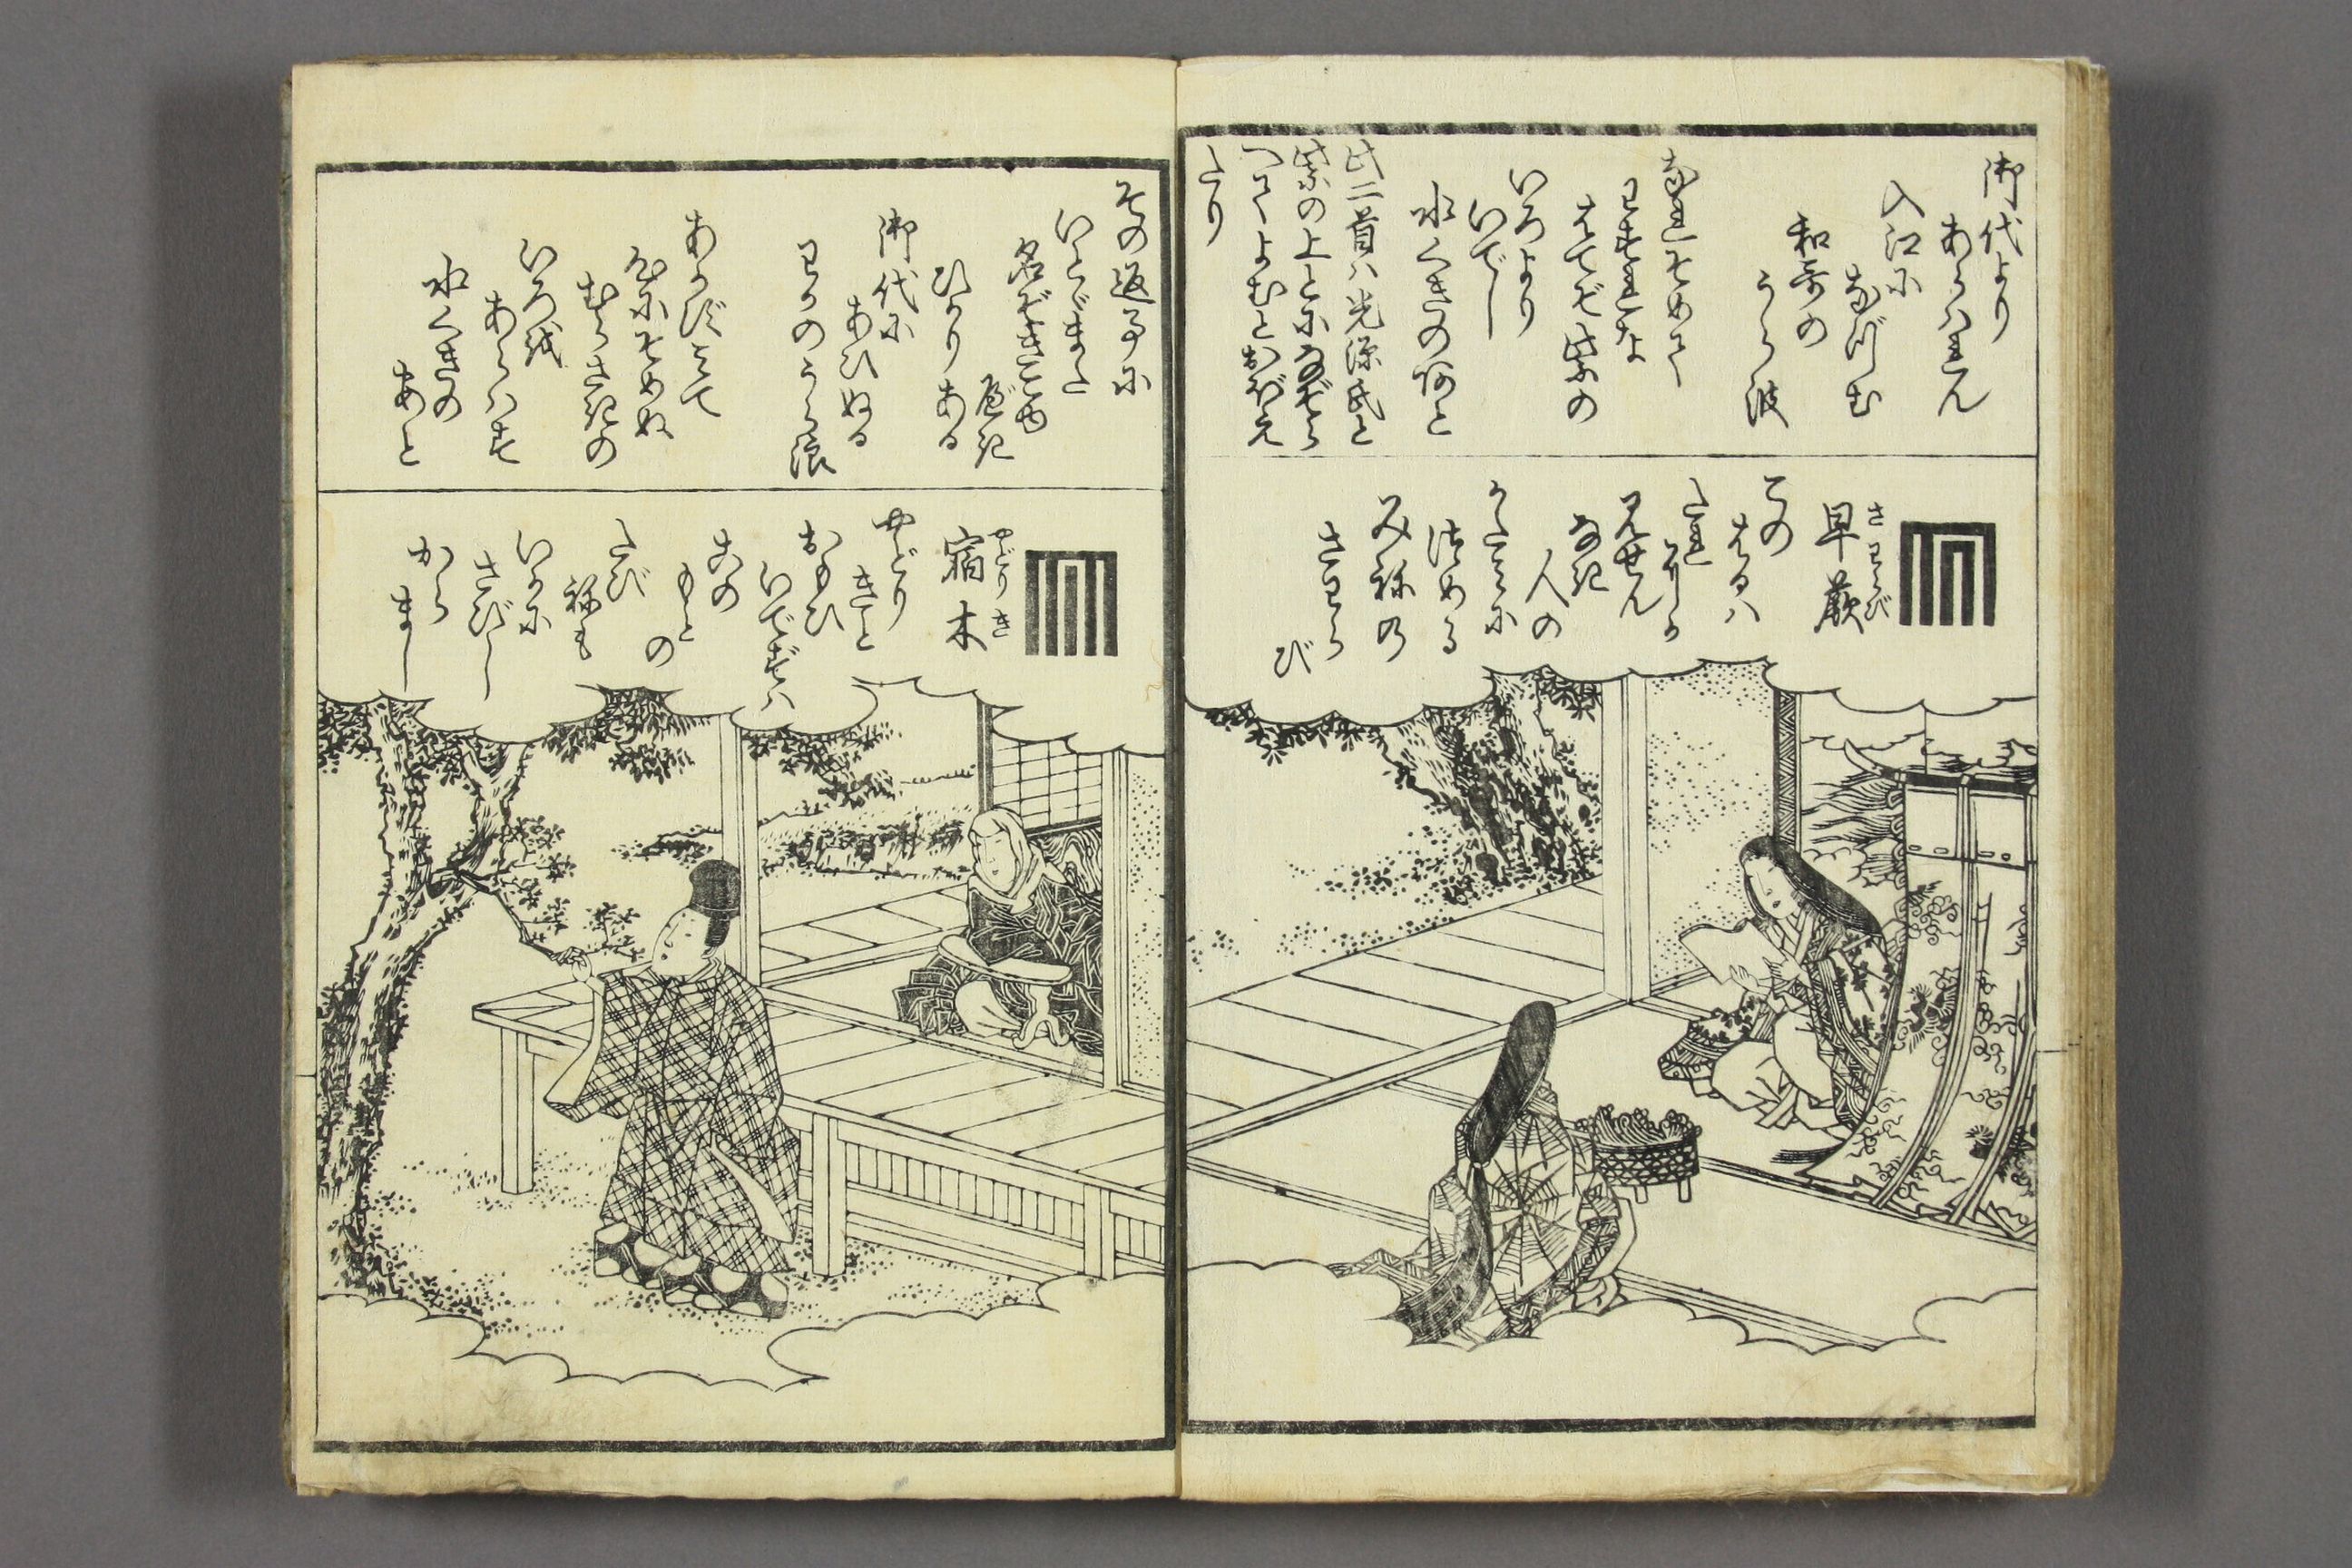 御代より
あらハれん
入江に
なづむ
和哥の
うら波
なれそめて
わするな
はてぞ紫の
いろより
いでし
水くきの阿と
此二首ハ光源氏と
紫の上とになぞら
へてよむとおぼえ
たり
さわらび
早蕨
この
はるハ
たれ
にか
見せん
なき
人の
かたみに
つめる
みねの
さわら
び
その返事に
いとゞまた
名ぞきこゆ
べき
ひかりある
御代に
あひぬる
わかのうら浪
あかずみて
心にそめぬ
むらさきの
いろを
あらハす
水くきの
あと
やどりき
宿木
やどり
きと
おもひ
いでずハ
木の
もと
の
たび
ねも
いかに
さびし
から
まし